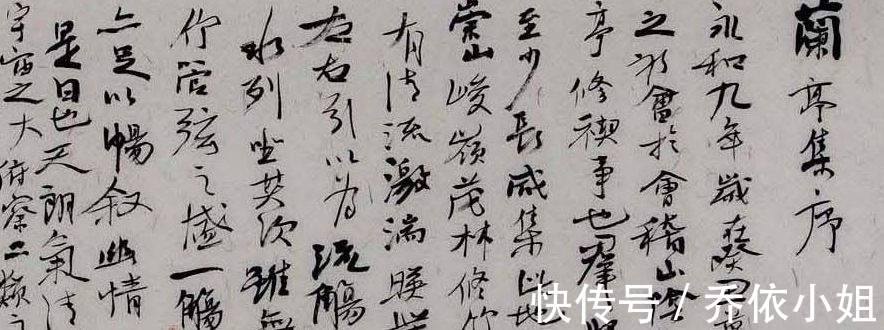 蘭亭集序
永和九年歲在癸丑
之初會於會稽山陰
亭修禊事也羣賢
至少長咸集此地
崇山峻嶺茂林修竹
有清流激湍暎帶
左右引以為流觴
水列坐其次雖無
竹管弦之盛一觴
亦足以暢叙幽情
是日也天朗氣清
宇宙之大俯察品類之
快传号 / 乔依小姐